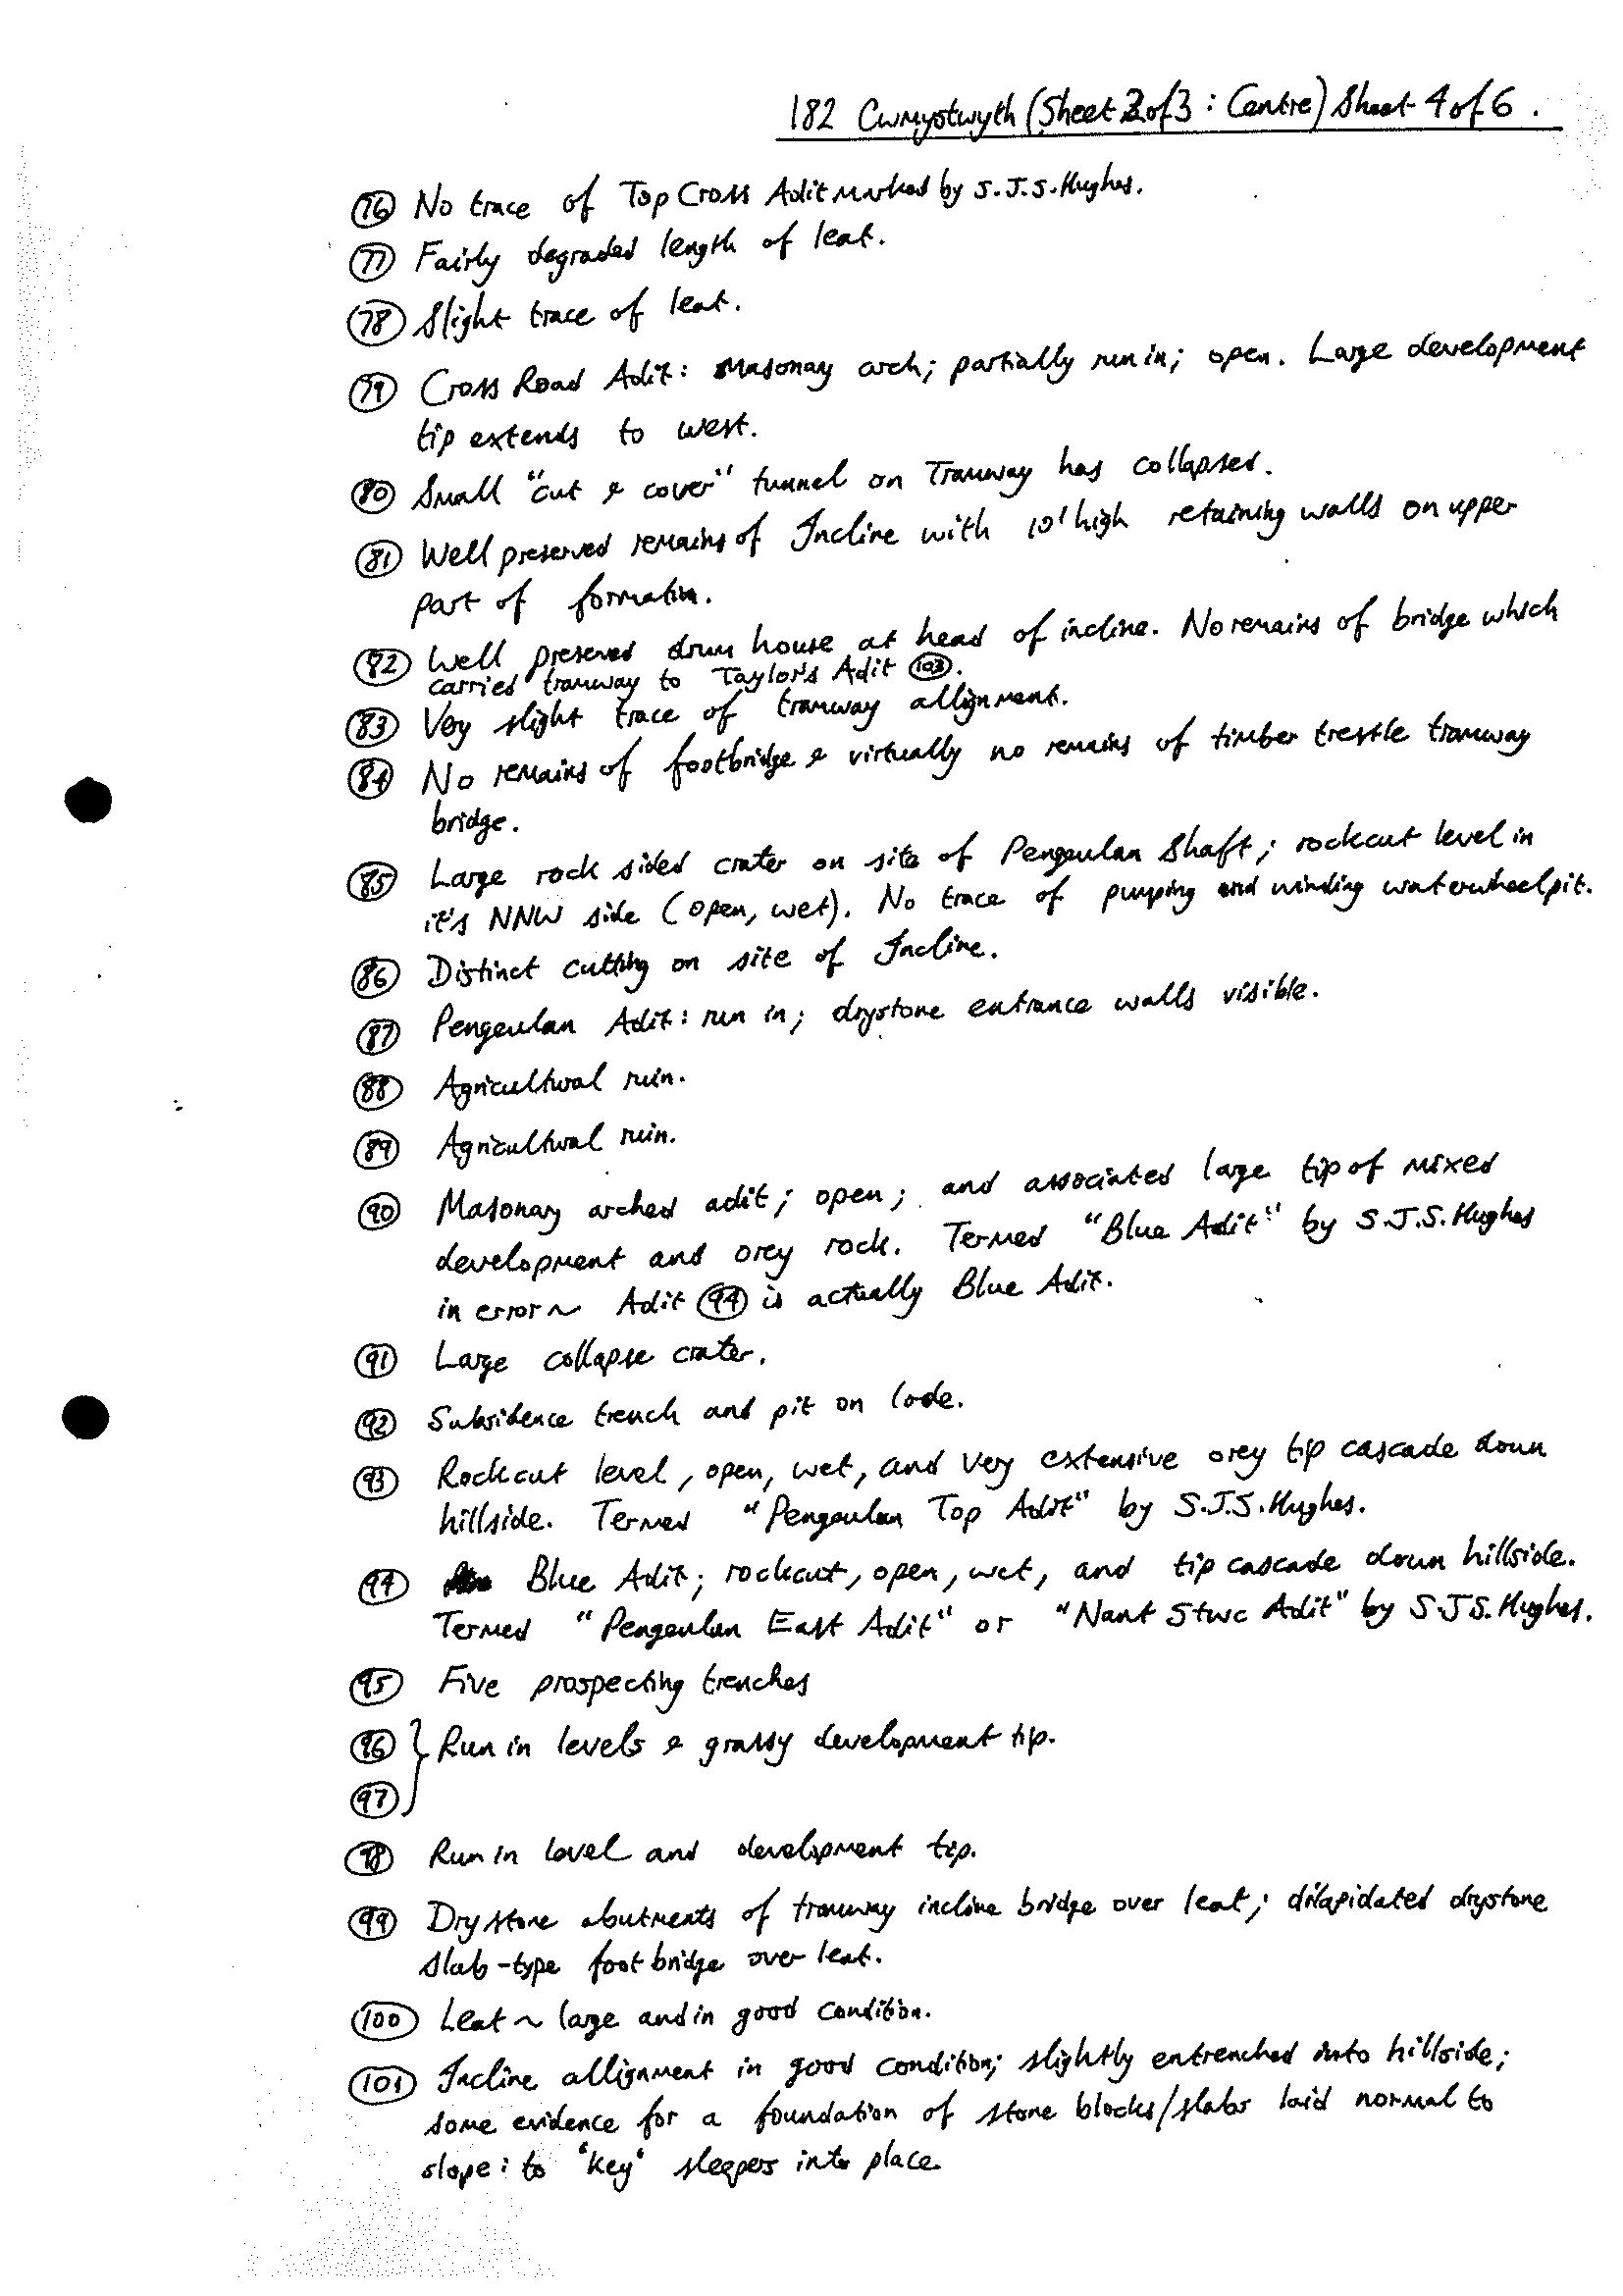 182 Cwmystwyth (Sheet 2 of 3 : Centre) Sheet 4 of 6.
76 No trace of Top Cross Adit marked by S.J.S. Hughes.
77 Fairly degraded length of leat.
78 Slight trace of leat.
79 Cross Road Adit: Masonay arch; partially run in; open. Large development
tip extends to west.
80 Small "cut & cover" tunnel on Tramway has collapsed.
81 Well preserved remains of Incline with 10' high retaining walls on upper
part of formation.
82 Well preserved drum house at head of incline. No remains of bridge which
carried tramway to Taylor's Adit 103.
83 Very slight trace of tramway allignment.
84 No remains of footbridge & virtually no remains of timber trestle tramway
bridge.
85 Large rock sided crater on site of Pengeulan Shaft; rockcut level in
it's NNW side (open, wet). No trace of pumping and winding waterwheelpit.
86 Distinct cutting on site of Incline.
87 Pengeulan Adit: run in; drystone entrance walls visible.
88 Agricultural ruin.
89 Agricultural ruin.
90 Masonay arched adit; open; and associated large tip of mixed
development and orey rock. Termed "Blue Adit" by S.J.S. Hughes
in error ~ Adit 94 is actually Blue Adit.
91 Large collapse crater.
92 Subsidence trench and pit on lode.
93 Rockcut level, open, wet, and very extensive orey tip cascade down
hillside. Termed "Pengeulan Top Adit" by S.J.S. Hughes.
94 Blue Adit; rockcut, open, wet, and tip cascade down hillside.
Termed "Pengeulan East Adit" or "Nant Stwc Adit" by S.J.S. Hughes.
95 Five prospecting trenches
96 } Run in levels & grassy development tip.
97
98 Run in level and development tip.
99 Drystone abutments of tramway incline bridge over leat; dilapidated drystone
slab-type footbridge over leat.
100 Leat ~ large and in good condition.
101 Incline allignment in good condition; slightly entrenched into hillside;
some evidence for a foundation of stone blocks/slabs laid normal to
slope: to 'key' sleepers into place.